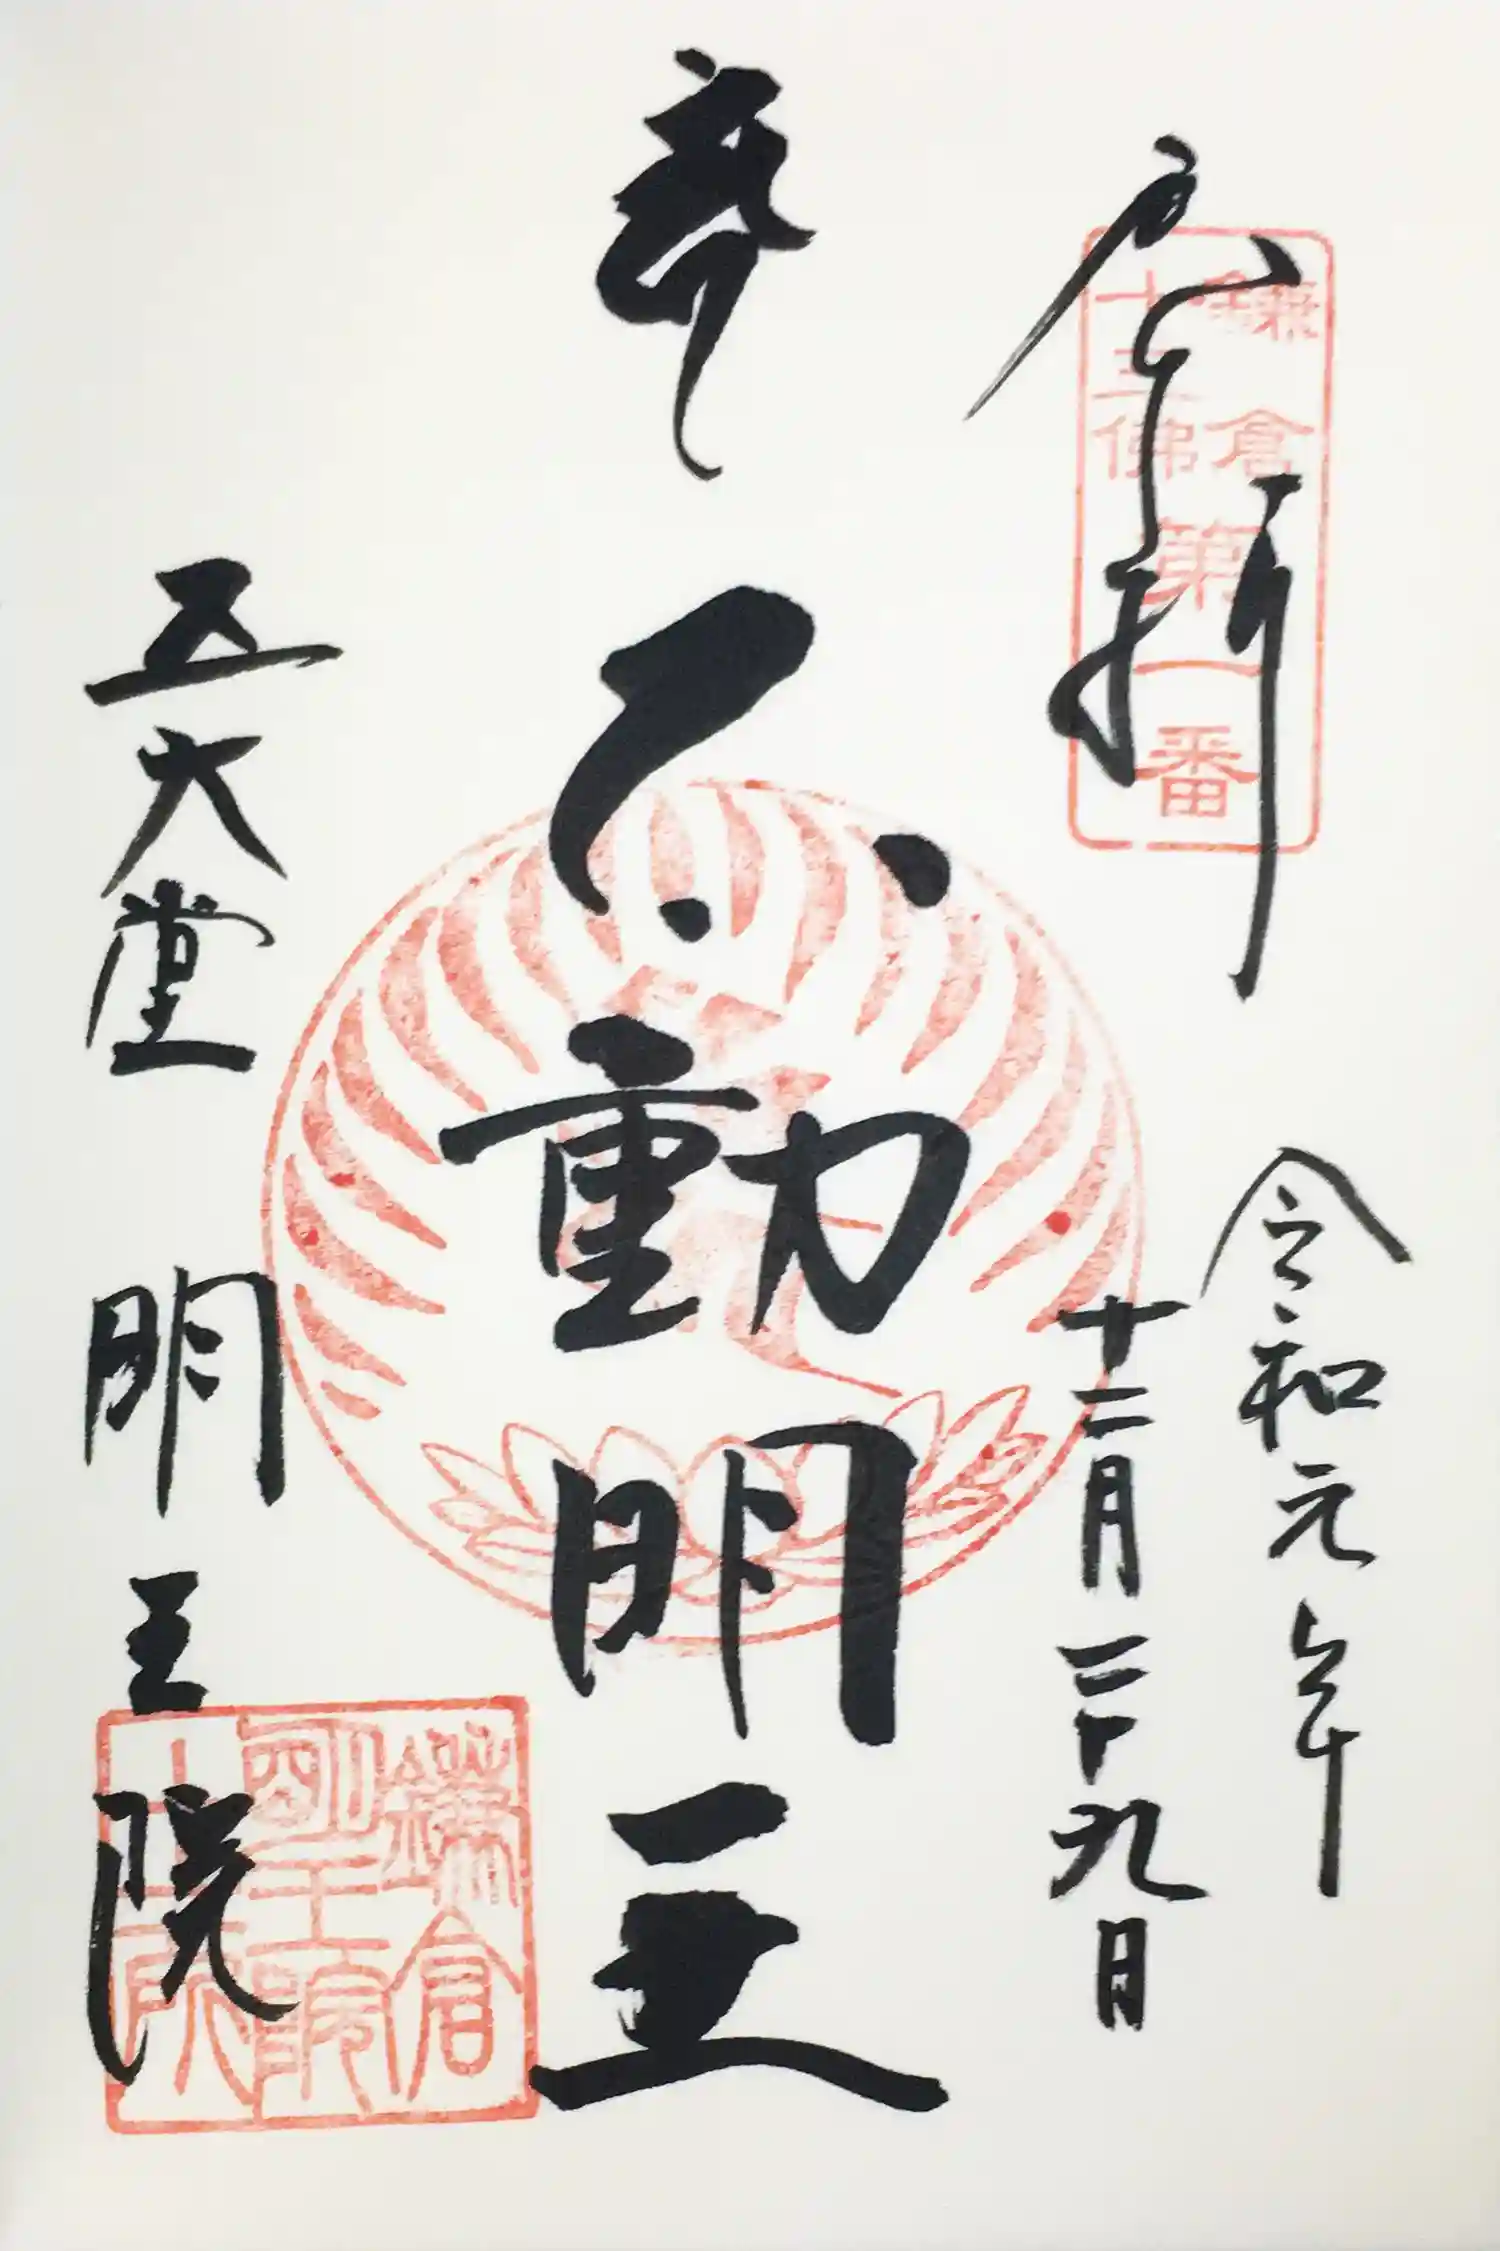 鎌倉
十三佛
第一番
令和元年
十二月二十九日
不動明王
五大堂 明王院
鎌倉
明王院
十二所